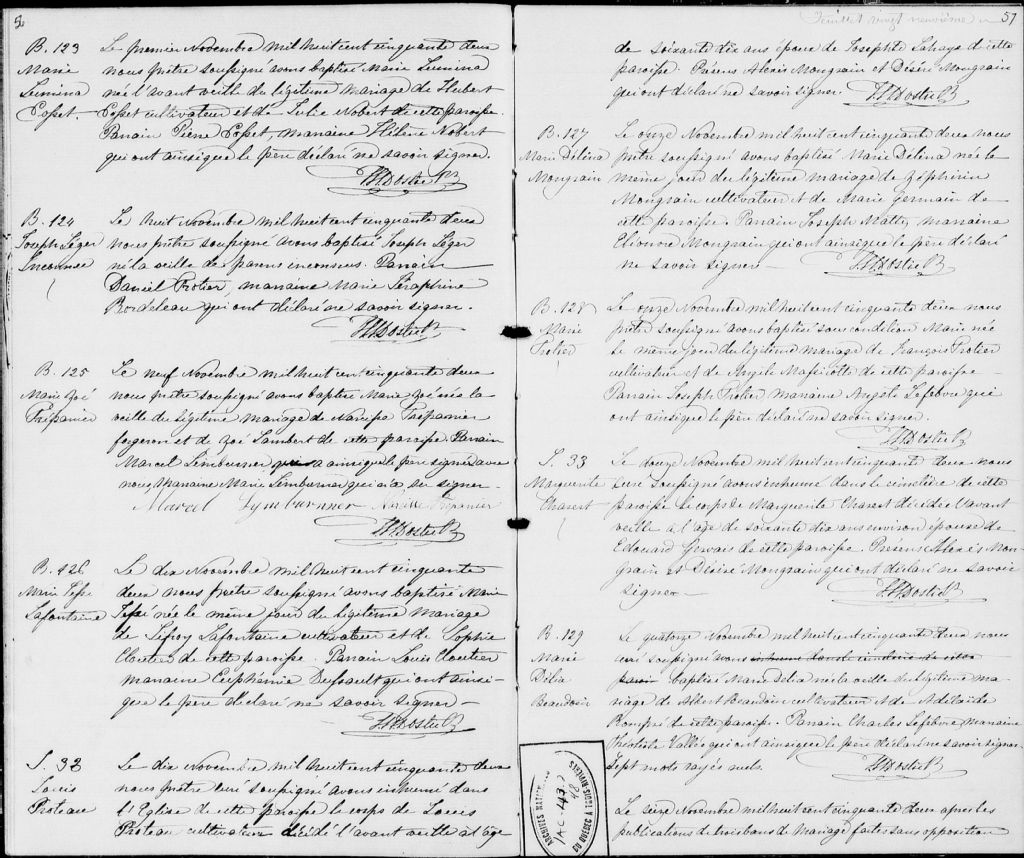 B. 123
Marie
Lumina
Cosset.
Le premier Novembre mil huit cent cinquante deux
nous prêtre soussigné avons baptisé Marie Lumina
née l'avant veille du légitime mariage de Hubert
Cosset cultivateur et de Julie Nobert de cette paroisse.
Parrain Pierre Cosset, marraine Hélène Nobert
qui ont ainsi que le père déclaré ne savoir signer.
B. 124
Joseph Léger
Inconnu
Le huit Novembre mil huit cent cinquante deux
nous prêtre soussigné avons baptisé Joseph Léger
né la veille de parens inconnus. Parrain
Daniel Trotier, marraine Marie Séraphine
Bordeleau qui ont déclaré ne savoir signer.
B. 125
Marie Zoé
Trépanier
Le neuf Novembre mil huit cent cinquante deux
nous prêtre soussigné avons baptisé Marie Zoé née la
veille du légitime mariage de Narcisse Trépanier
forgeron et de Zoé Lambert de cette paroisse. Parrain
Marcel Limburner qui a ainsi que le père signé avec
nous, Marraine Marie Limburner qui n'a su signer.
Marcel Lymburner Narcisse Trépanier
B. 126
Lafontaine
Le dix Novembre mil huit cent cinquante
deux nous prêtre soussigné avons baptisé Marie
née le même jour du légitime Mariage
de Lafontaine cultivateur et de Sophie
Cloutier de cette paroisse. Parrain Louis Cloutier
marraine Euphémie Dufsault qui ont ainsi
que le père déclaré ne savoir signer —
S. 32
Louis
Proteau
Le dix Novembre mil huit cent cinquante deux
nous prêtre curé soussigné avons inhumé dans
l'Eglise de cette paroisse le corps de Louis
Proteau cultivateur décédé l'avant veille à l'âge
feuillet vingt neuvième 57
de soixante dix ans époux de Josephte Lahaye de cette
paroisse. Présens Alexis Mongrain et Désiré Mongrain
qui ont déclaré ne savoir signer.
B. 127
Marie Délina
Mongrain
Le onze Novembre mil huit cent cinquante deux nous
prêtre soussigné avons baptisé Marie Délina née le
même jour du légitime mariage de Zéphirin
Mongrain cultivateur et de Marie Germain de
cette paroisse. Parrain Joseph Matte, marraine
Eléonore Mongrain qui ont ainsi que le père déclaré
ne savoir signer —
B. 128
Marie
Trotier
Le onze Novembre mil huit cent cinquante deux nous
prêtre soussigné avons baptisé sous condition Marie née
le même jour du légitime mariage de François Trotier
cultivateur et de Angèle Massicotte de cette paroisse —
Parrain Joseph Trotier marraine Angèle Lefebvre qui
ont ainsi que le père déclaré ne savoir signer.
S. 33
Marguerite
Charest
Le douze Novembre mil huit cent cinquante deux nous
curé soussigné avons inhumé dans le cimetière de cette
paroisse le corps de Marguerite Charest décédée l'avant
veille à l'âge de soixante dix ans environ épouse de
Edouard Gervais de cette paroisse. Présens Alexis Mon-
grain et Désiré Mongrain qui ont déclaré ne savoir
signer —
B. 129
Marie
Délia
Beaudoin
Le quatorze Novembre mil huit cent cinquante deux nous
curé soussigné avons inhumé dans le cimetière de cette
paroisse baptisé Marie Délia née la veille du légitime ma-
riage de Albert Beaudoin cultivateur et de Adélaïde
Rompré de cette paroisse. Parrain Charles Lefebvre, marraine
Théotiste Vallée qui ont ainsi que le père déclaré ne savoir signer.
Sept mots rayés nuls.
Le seize Novembre mil huit cent cinquante deux après les
publications de trois bans de Mariage faites sans opposition